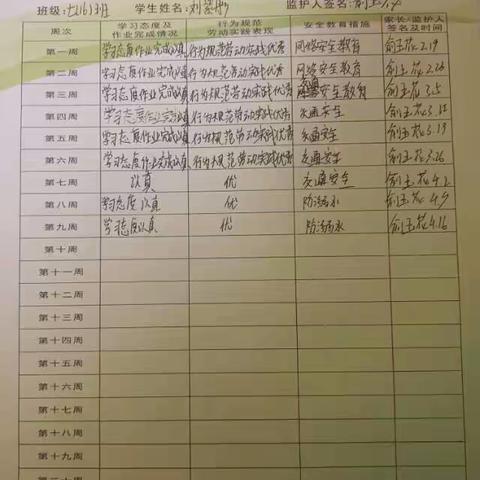 班级:七(16)班 学生姓名:刘 监护人签名:俞玉花
周次 学习态度及作业完成情况 行为规范劳动实践表现 安全教育措施 家长、监护人签名及时间
第一周 学习态度作业完成认真 行为规范劳动实践优秀 网络安全教育 俞玉花2.19
第二周 学习态度作业完成认真 行为规范劳动实践优秀 网络安全教育 俞玉花2.26
第三周 学习态度作业完成认真 行为规范劳动实践优秀 交通安全教育 俞玉花3.5
第四周 学习态度作业完成认真 行为规范劳动实践优秀 交通安全 俞玉花3.12
第五周 学习态度作业完成认真 行为规范劳动实践优秀 交通安全 俞玉花3.19
第六周 学习态度作业完成认真 行为规范劳动实践优秀 交通安全 俞玉花3.26
第七周 认真 优 交通安全 俞玉花4.2
第八周 学习态度认真 优 防溺水 俞玉花4.9
第九周 学习态度认真 优 防溺水 俞玉花4.16
第十周
第十一周
第十二周
第十三周
第十四周
第十五周
第十六周
第十七周
第十八周
第十九周